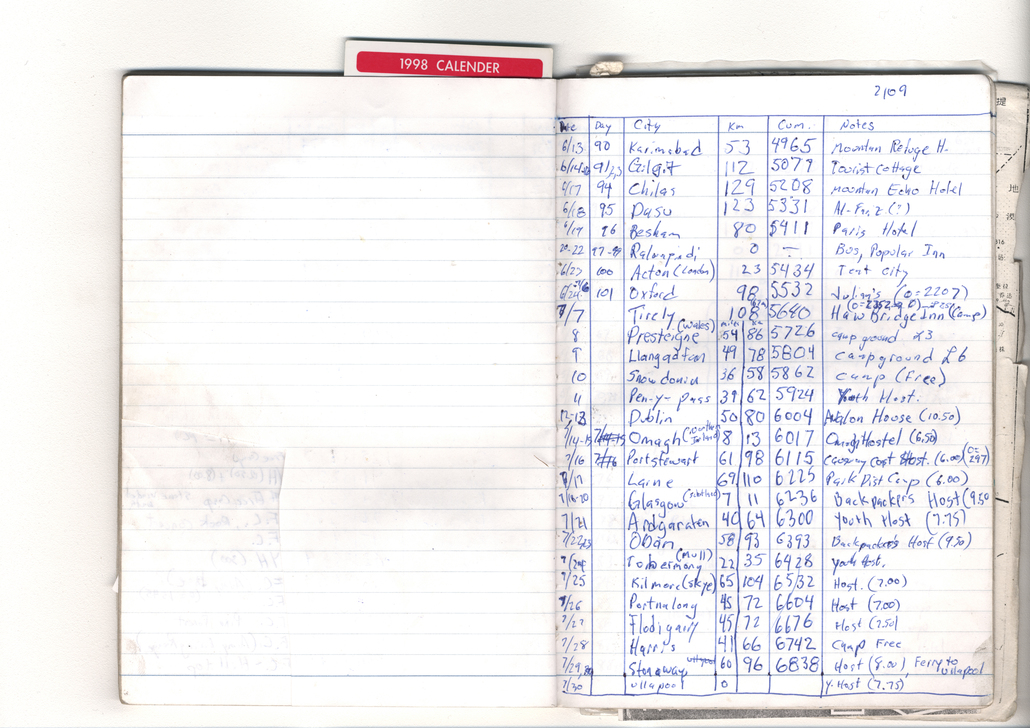 1998 CALENDER
2109
Date Day City Km Cum. Notes
6/13 90 Karimabad 53 4965 Mountain Refuge H.
6/14 91/2,3 Gilgit 112 5079 Tourist Cottage
6/17 94 Chilas 129 5208 Mountain Echo Hotel
6/18 95 Dasu 123 5331 (?)
6/19 96 Besham 80 5411 Paris Hotel
20-22 97-99 0 – Bus, Popular Inn
6/23 100 Acton (London) 23 5434 Tent City
6/24 101 Oxford 98 5532 (0=2207)
7/7 Tirely 108 5640 Haw Bridge Inn (camp)
8 Presteigne (Wales) 54 86 5726 camp ground £3
9 49 78 5804 campground £6
10 Snowdonia 36 58 5862 camp (free)
11 Pen-y-pass 39 62 5924 Youth Host.
12-13 Dublin 50 80 6004 Avalon House (10.50)
7/14-15 Omagh (Northern Ireland) 8 13 6017 Omagh Hostel (6.50)
7/16 Portstewart 61 98 6115 Causway Cost Host. (6.00)
7/17 Larne 69 110 6225 Park Dist Camp (6.00)
7/18-20 Glasgow (Scotland) 7 11 6236 Backpackers Host (9.50
7/21 Ardgaraten 40 64 6300 Youth Host (7.75)
7/22,23 Oban 58 93 6393 Backpackers Host (9.50)
7/24 Tobermony (Mull) 22 35 6428 Youth Host.
7/25 Kilmore (Skye) 65 104 6532 Host. (7.00)
7/26 Portnalong 45 72 6604 Host (7.00)
7/27 Flodigarry 45 72 6676 Host (7.50)
7/28 Harris 41 66 6742 Camp Free
7/29,30 Stonaway 60 96 6838 Host (8.00), Ferry to Ullapool
7/30 Ullapool 0 Y. Host (7.75)